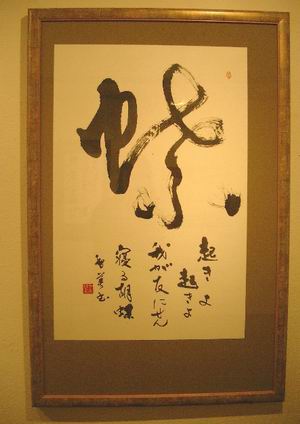 蝶
起きよ
起きよ
我が友にせん
寝る胡蝶